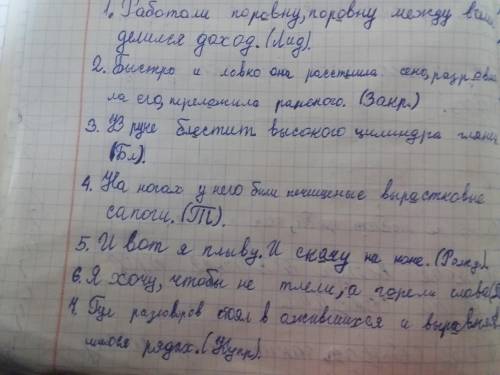 1. Работали поровну, поровну между вами
делился доход. (Лид).
2. Быстро и ловко она расстелила сено, разровня
ла его, переложила раненого. (Закр.)
3. В руке блестит высокого цилиндра глянец
(Бл).
4. На ногах у него были почищеные вырастковые
сапоги. (Т).
5. И вот я плыву. И скачу на коне. (Рожд).
6. Я хочу, чтобы не тлели, а горели слова
7. Гул разговоров стоял в оживившихся и выровняв
шихся рядах. (Купр).